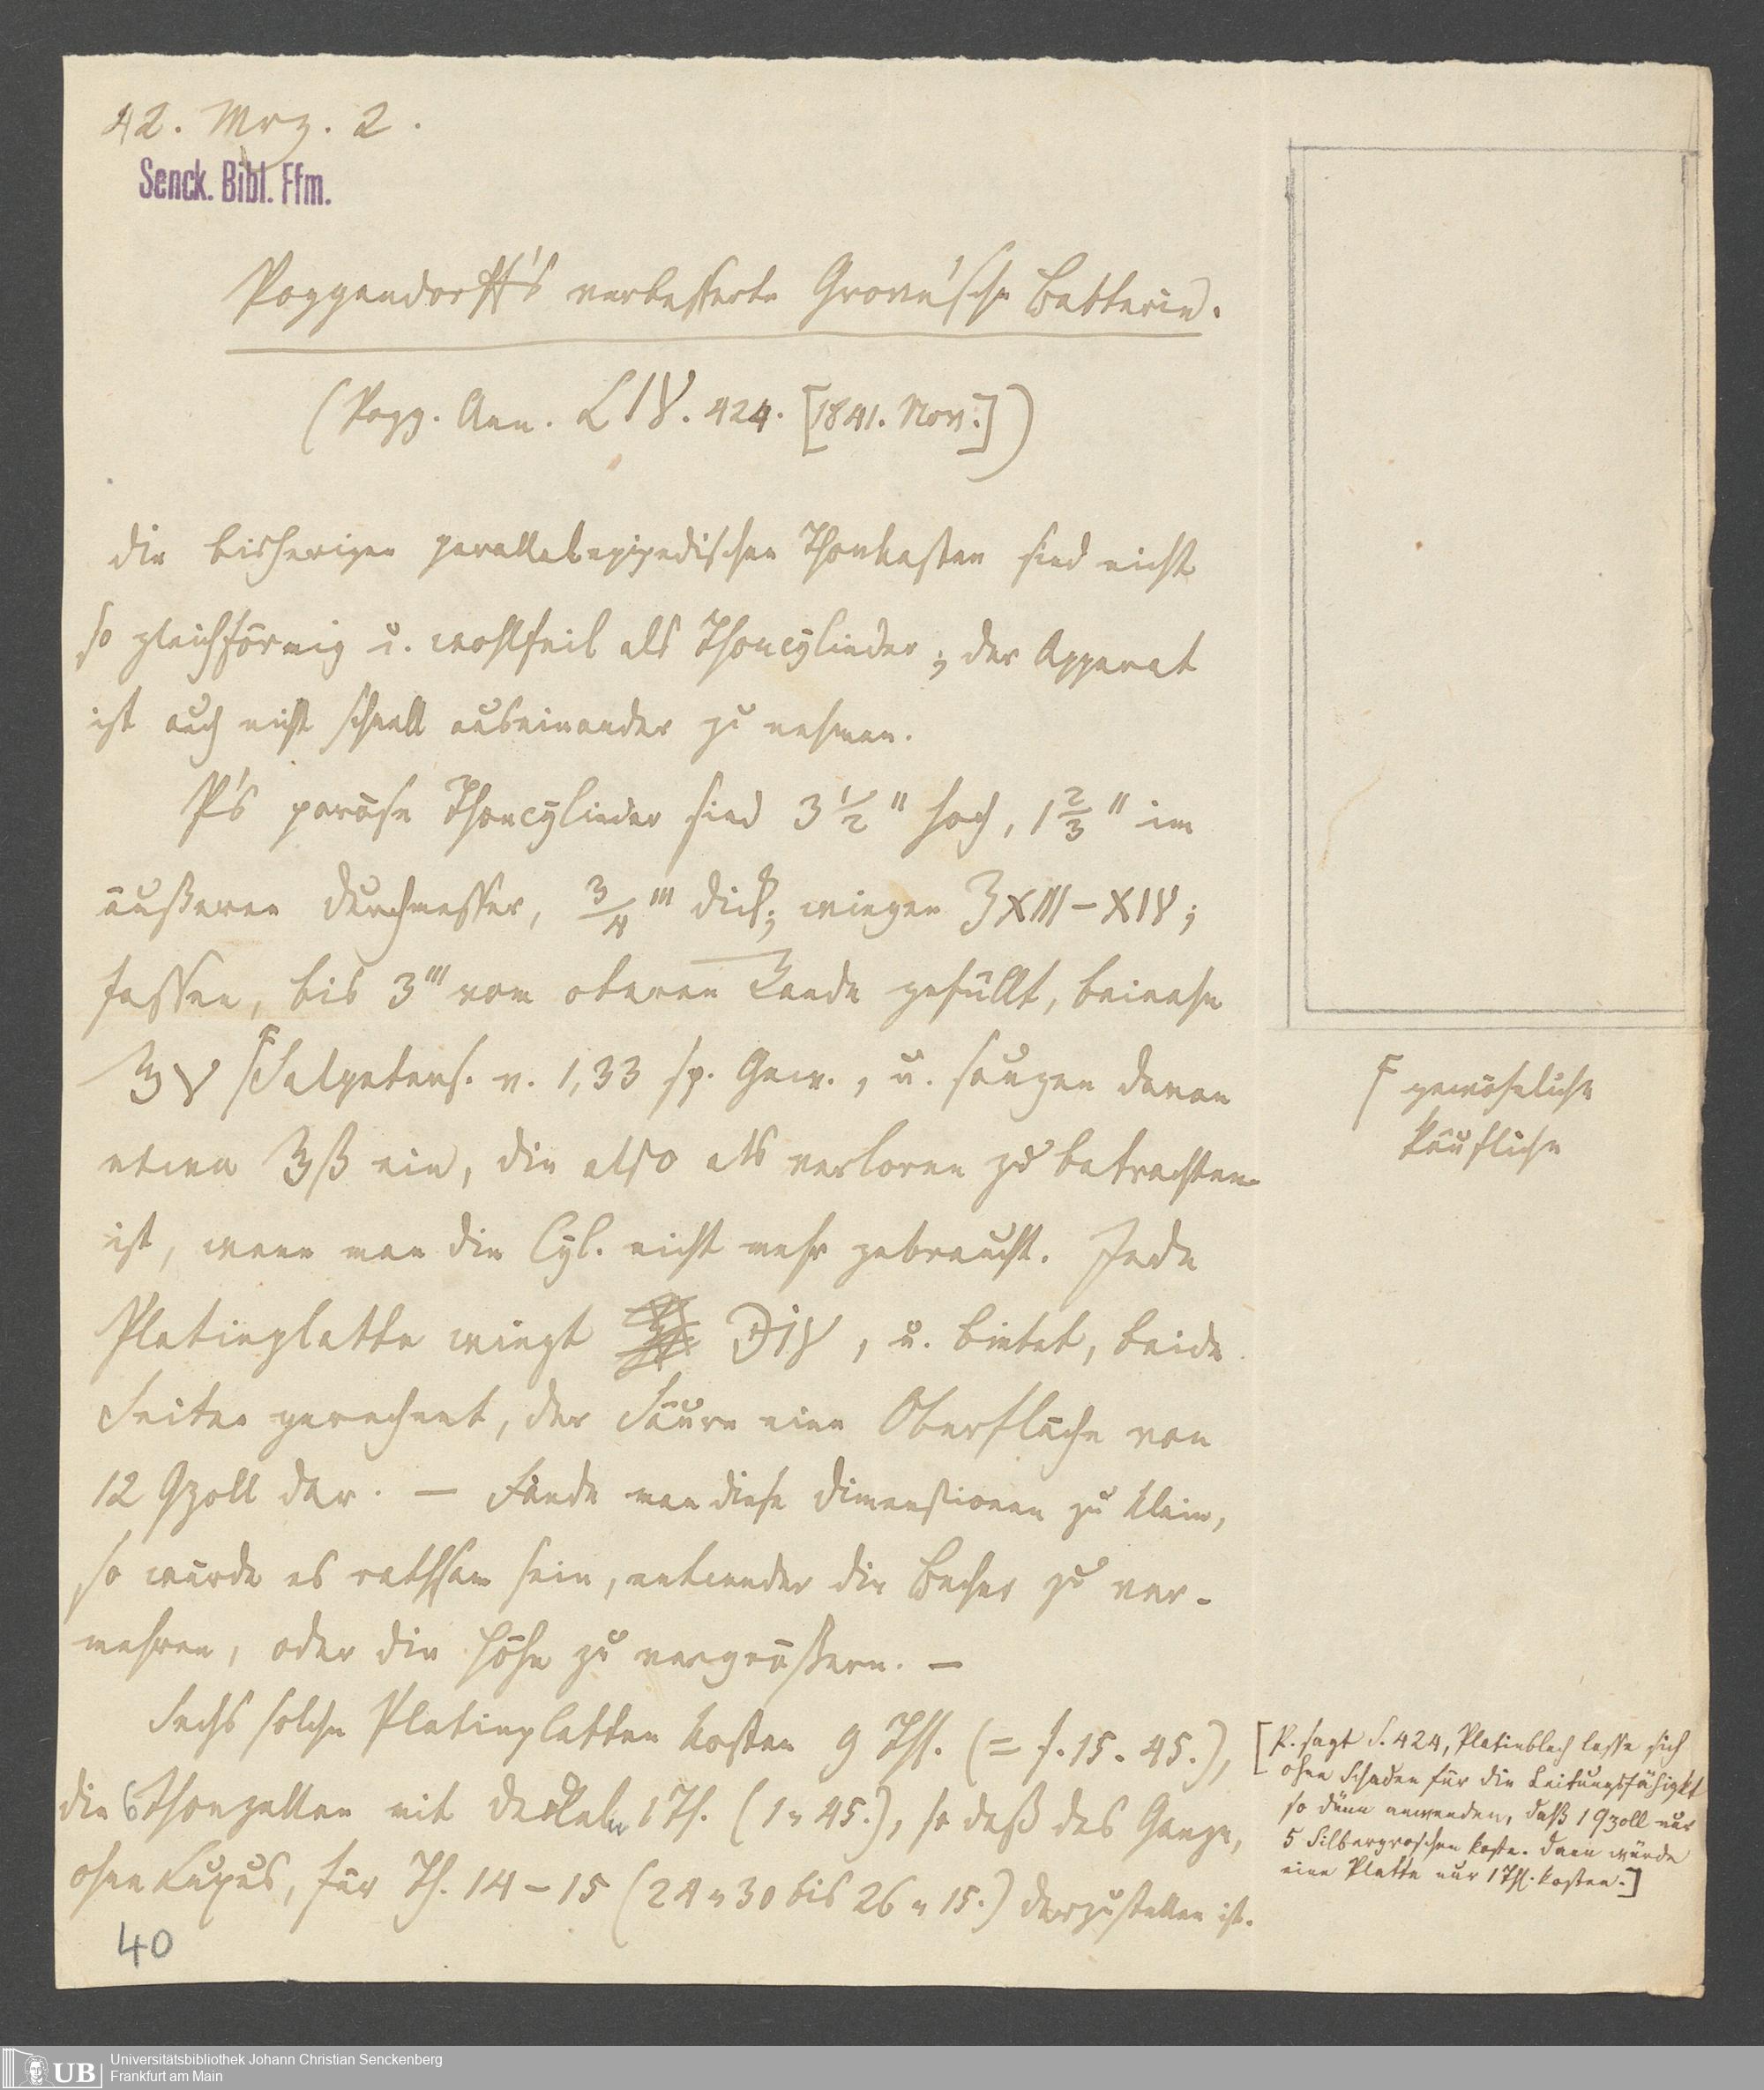 42. Mrz. 2.
Senck. Bibl. Ffm.
Poggendorff's verbesserte Grove'sche Batterie.
(Pogg. Ann. LIV. 424. [1841. Nov.])
Die bisherigen parallelepipedischen Thonkasten sind nicht
so gleichförmig u. wohlfeil als Thoncylinder; der Apparat
ist auch nicht schnell auseinander zu nehmen.
P's poröse Thoncylinder sind 3 1/2" hoch, 1 2/3" im
äußeren Durchmesser, 3/4''' dick; wiegen ʒXIII–XIV;
fassen, bis 3''' vom oberen Rande gefüllt, beinahe
℥V ſ Salpeters. v. 1,33 sp. Gew., u. saugen davon
etwa ℥ß ein, die also als verloren zu betrachten
ist, wenn man die Cyl. nicht mehr gebraucht. Jede
Platinplatte wiegt ℈IV, u. bietet, beide
Seiten gerechnet, der Säure eine Oberfläche von
12 Qzoll dar. — Fände man diese Dimensionen zu klein,
so würde es rathsam sein, entweder die Becher zu ver-
mehren, oder die Höhe zu vergrößern. —
Sechs solche Platinplatten kosten 9 Thl. (= f. 15. 45.),
die 6 Thonzellen mit Deckeln 1 Th. (1 „ 45.), so daß das Ganze,
ohne Luxus, für Th. 14–15 (24 „ 30 bis 26 „ 15.) darzustellen ist.
40
ſ gewöhnliche
käufliche
[P. sagt S. 424, Platinblech lasse sich
ohne Schaden für die Leitungsfähigkt
so dünn anwenden, daß 1 Qzoll nur
5 Silbergroschen koste. Dann würde
eine Platte nur 1 Thl. kosten.]
UB
Universitätsbibliothek Johann Christian Senckenberg
Frankfurt am Main